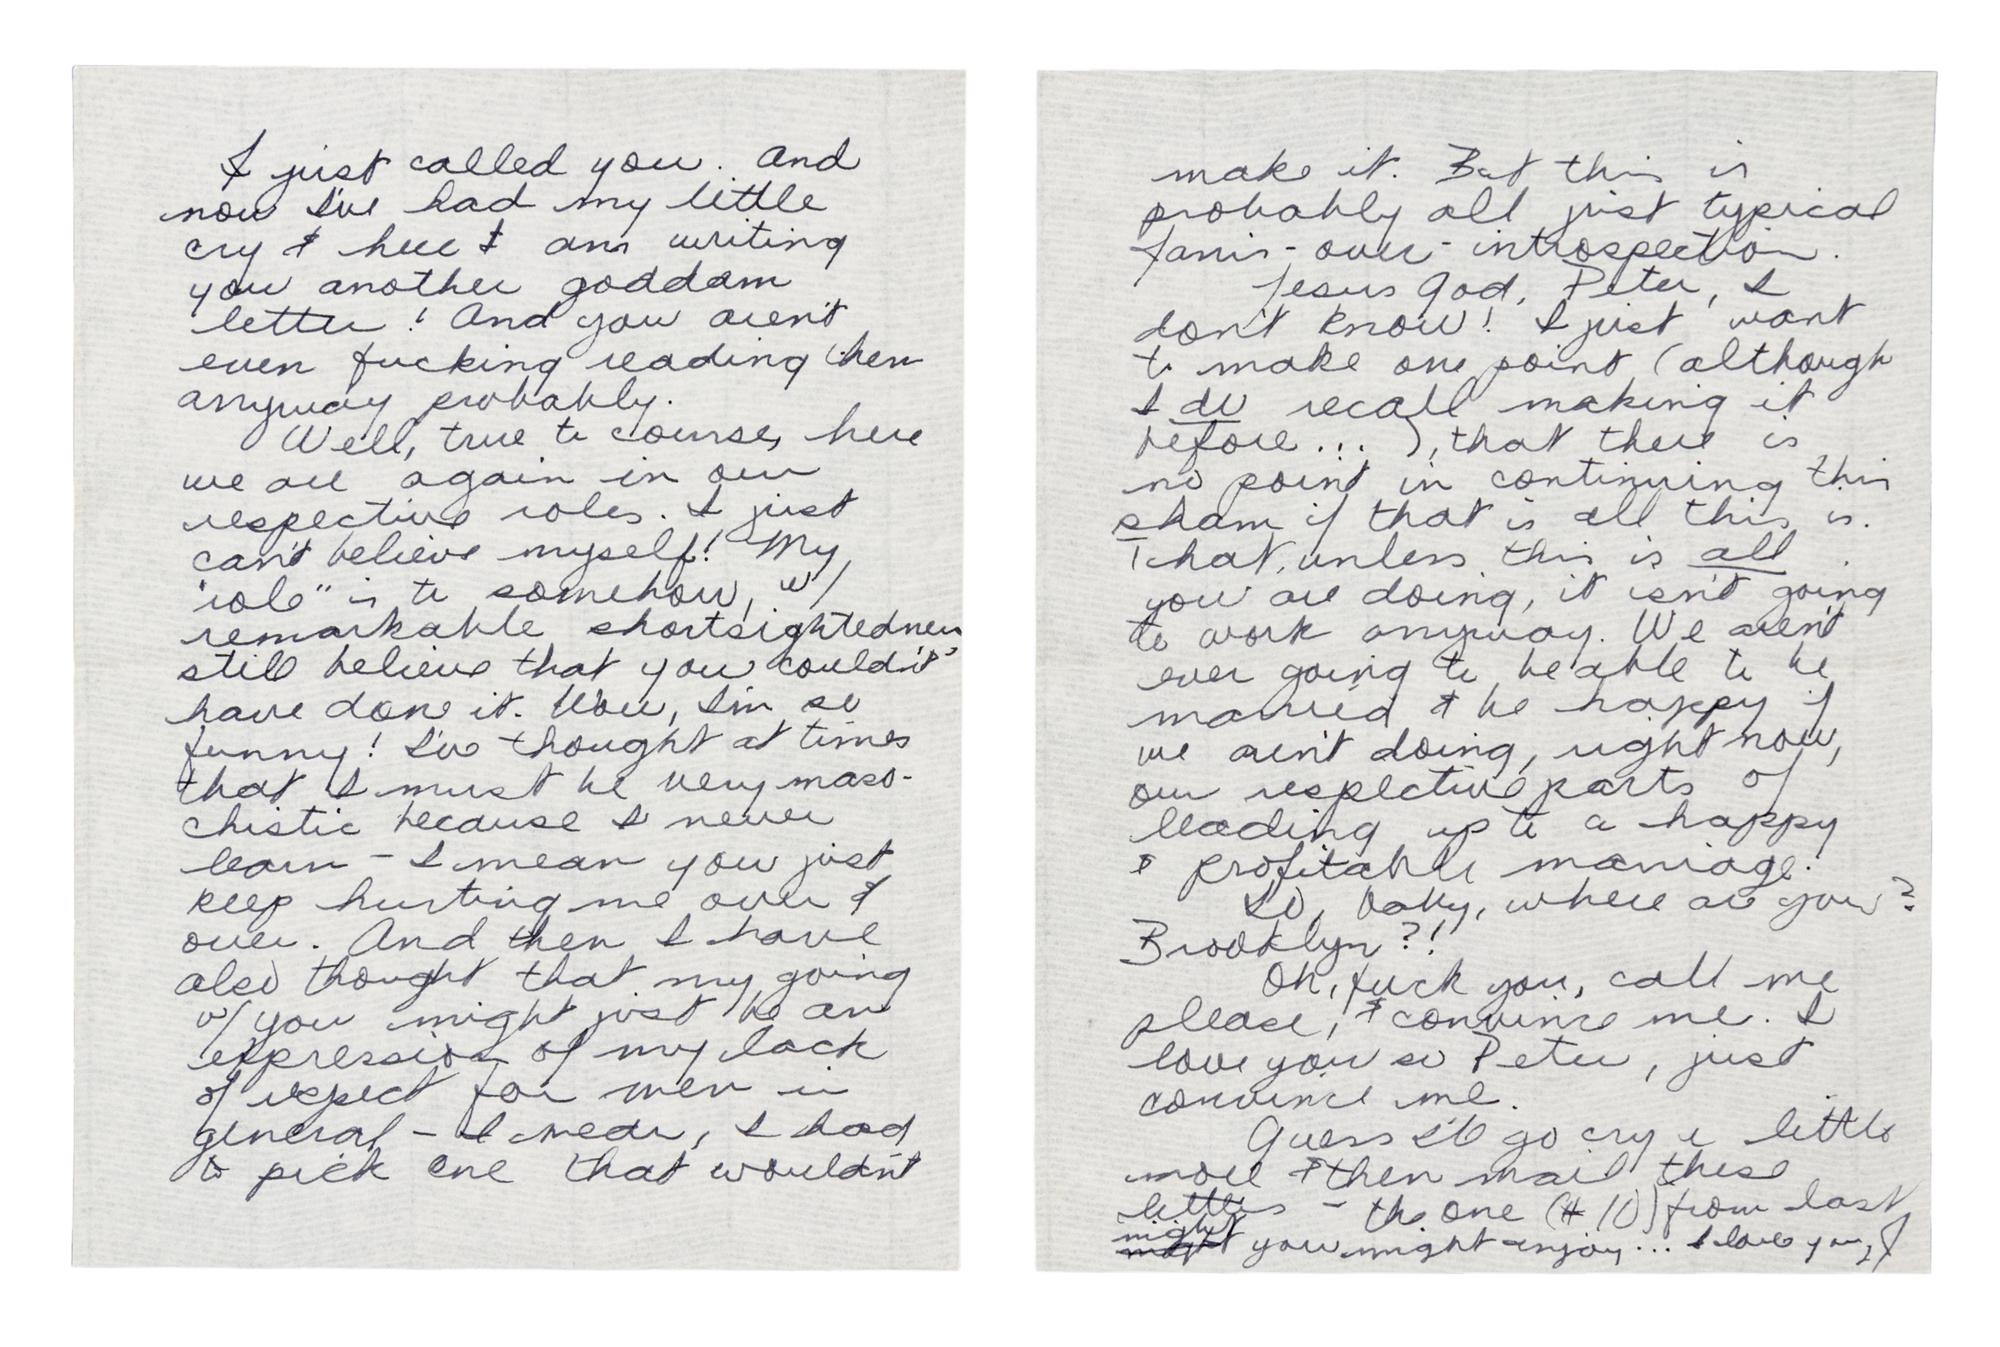 I just called you. And
now I've had my little
cry & here I am writing
you another goddam
letter! And you aren't
even fucking reading them
anyway probably.
Well, true to course, here
we are again in our
respective roles. I just
can't believe myself! My
"role" is to somehow, w/
remarkable shortsightedness
still believe that you couldn't
have done it. Wow, I'm so
funny! I've thought at times
that I must be very maso-
chistic because I never
learn - I mean you just
keep hurting me over &
over. And then I have
also thought that my going
w/ you might just be an
expression of my lack
of respect for men in
general - I mean, I had
to pick one that wouldn't
make it. But this is
probably all just typical
Janis-over-introspection.
Jesus God, Peter, I
don't know! I just want
to make one point (although
I do recall making it
before...), that there is
no point in continuing this
sham if that is all this is.
That, unless this is all
you are doing, it isn't going
to work anyway. We aren't
ever going to be able to be
married & be happy if
we aren't doing, right now,
our respective parts of
leading up to a happy
& profitable marriage.
So, baby, where are you?
Brooklyn?!
Oh, fuck you, call me
please, & convince me. I
love you so Peter, just
convince me.
Guess I'll go cry a little
more & then mail these
letters - the one (#10) from last
night you might enjoy... I love you, J